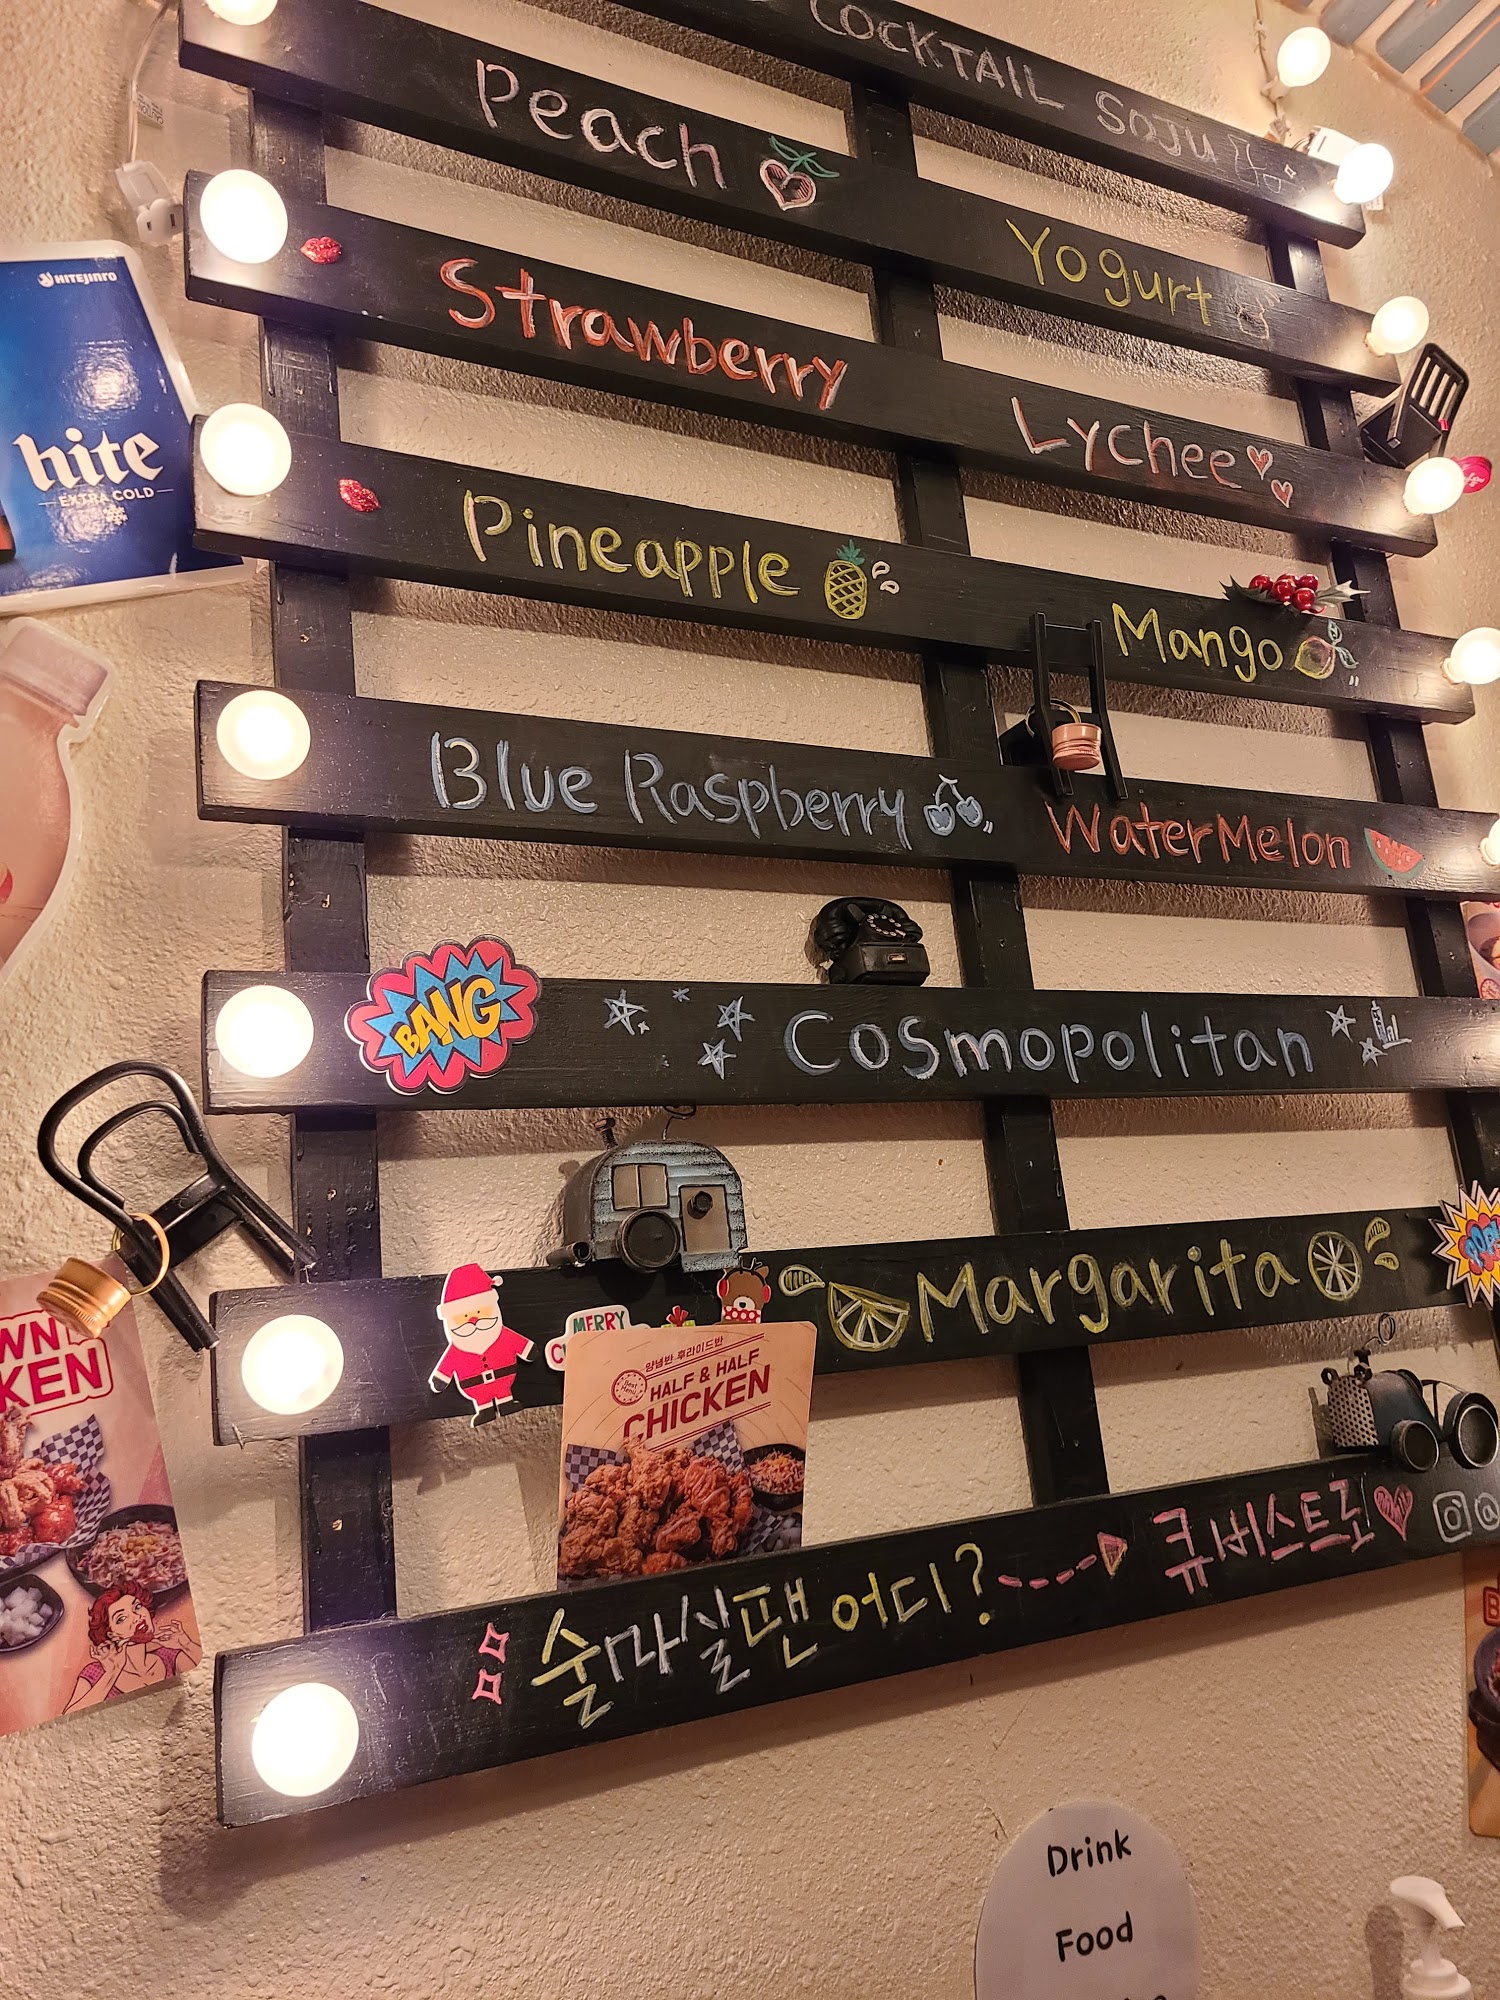 COCKTAIL SOJU
Peach
Yogurt
Strawberry
Lychee
Pineapple
Mango
Blue Raspberry
WaterMelon
BANG
Cosmopolitan
Margarita
MERRY
양념반 후라이드반
Best Menu
HALF & HALF
CHICKEN
술마실땐 어디? 큐비스트로
@
HITEJINRO
hite
EXTRA COLD
Drink
Food